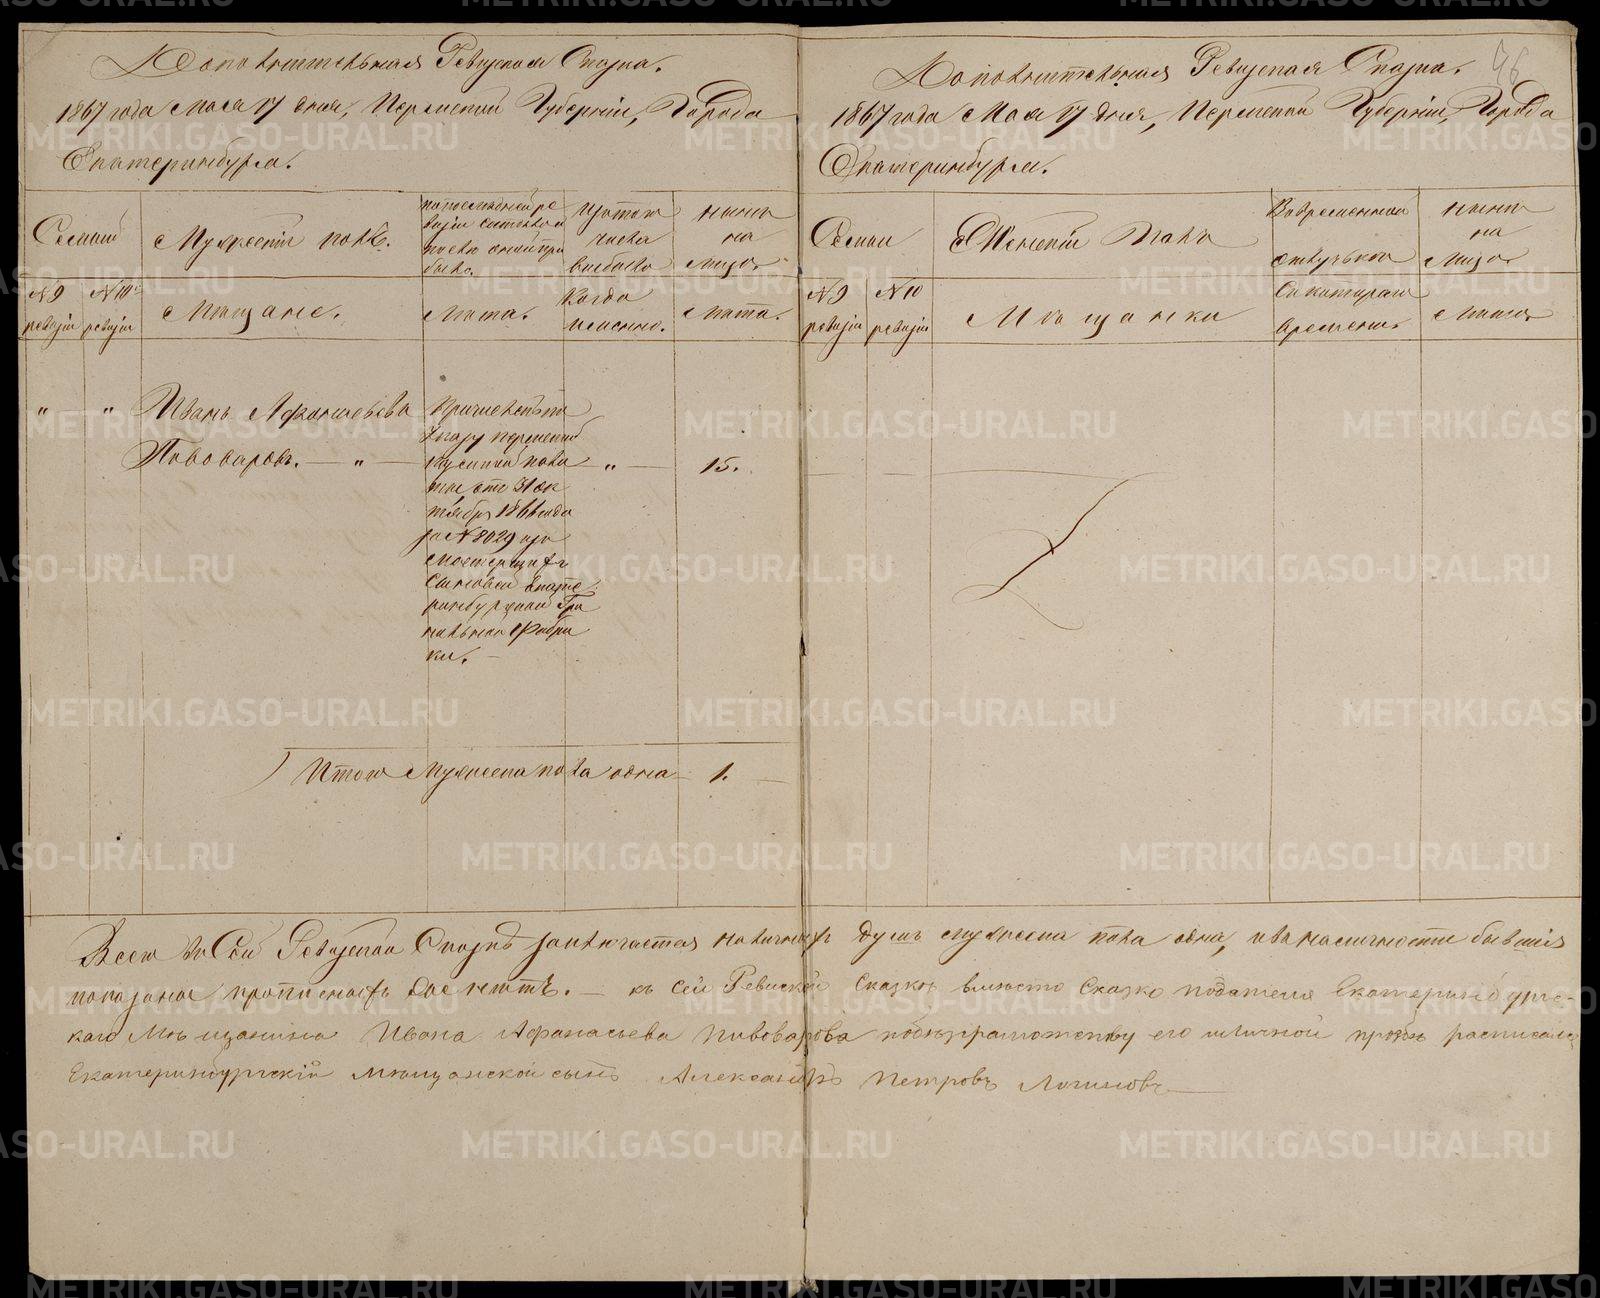 Дополнительная Ревизская Сказка.
1867 года Мая 17 дня, Пермской Губерніи, Города
Екатеринбурга.
Семьи
Мужескій полъ.
по последней ре
визіи состояло и
после оной при
было.
Изтого
числа
выбыло
ныне
на
лицо.
№ 9
ревизіи
№ 10
ревизіи
Мещане.
Лета.
Когда
именно.
Лета.
" " Иванъ Афонасьевъ
Пивоваровъ. — " —
Причисленъ по
Указу Пермской
Казенной пала
ты отъ 31 ок
тября 1866 года
за № 8029 изъ
мастерскихъ
сыновей Екате
ринбургской Гра
нильной Фабри
ки. —
"
15.
Итого Мужеска пола одна 1.
96
Дополнительная Ревизская Сказка.
1867 года Мая 17 дня, Пермской Губерніи, Города
Екатеринбурга.
Семьи
Женскій Полъ
Во временной
отлучькой
ныне
на
лицо
№ 9
ревизіи
№ 10
ревизіи
Мещанки
Съ котораго
времени.
Лета
Всего въ Сей Ревизской Сказкѣ заключается наличныхъ душъ мужеска пола одна, и въ наличности бывшія
показаны, прописныхъ дое нетъ. — къ сей Ревиской Сказке вместо Сказко подателя Екатеринбургс-
каго Мещанина Ивана Афанасьева Пивоварова по безграмотству его и личной прозбе расписался
Екатеринбургскій мещанской сынъ Александръ Петровъ Логиновъ
METRIKI.GASO-URAL.RU